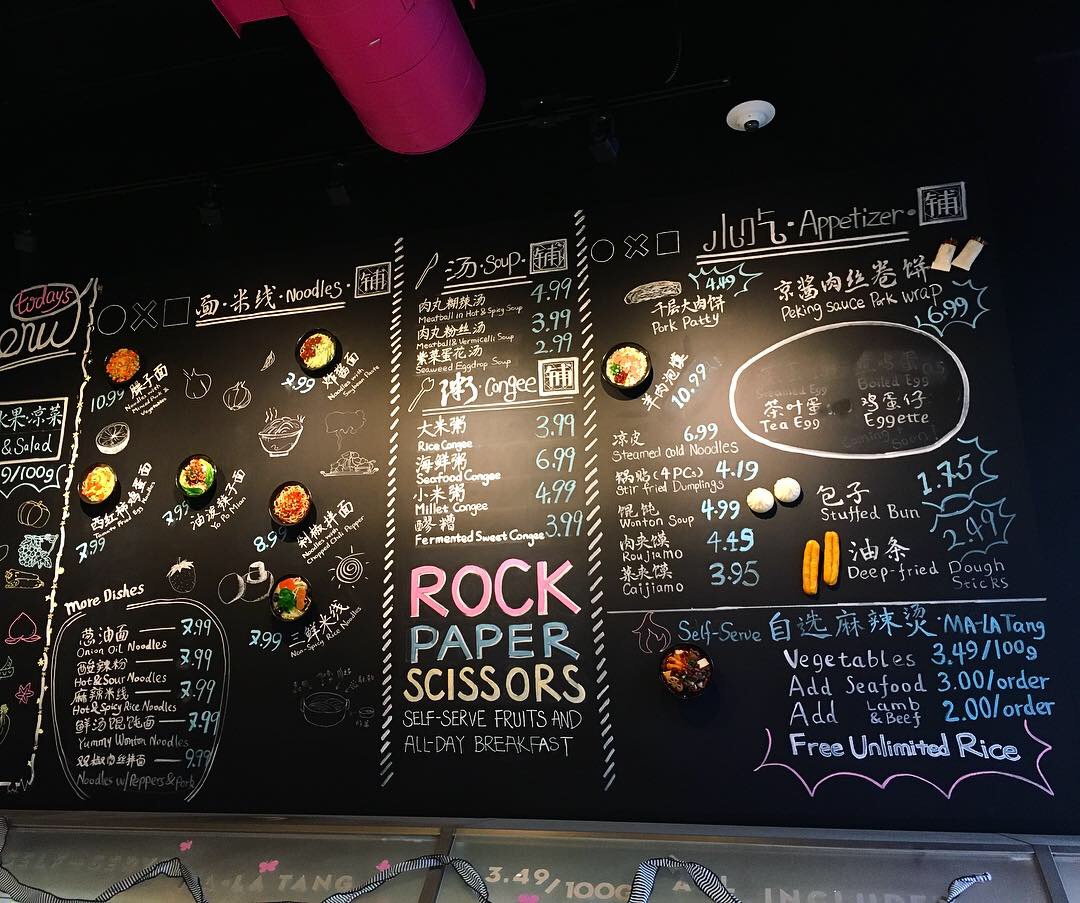 today's
水果·凉菜
& Salad
9/100g
面·米线·Noodles·铺
10.99 臊子面
Noodles with
Minced Pork &
Vegetables
7.99 炸酱面
Noodles with
Soybean Paste
西红柿鸡蛋面
7.99
7.99 油泼辣子面
Yo Po Mian
剁椒拌面
Noodles with
Chopped Chili Pepper
7.99 三鲜米线
Non-Spicy Rice Noodles
More Dishes
葱油面 — 7.99
Onion Oil Noodles
酸辣粉 — 7.99
Hot & Sour Noodles
麻辣米线 — 7.99
Hot & Spicy Rice Noodles
鲜汤馄饨面 — 7.99
Yummy Wonton Noodles
双椒肉丝拌面 — 9.99
Noodles w/ Peppers & Pork
汤·Soup·铺
肉丸糊辣汤 4.99
Meatball in Hot & Spicy Soup
肉丸粉丝汤 3.99
Meatball & Vermicelli Soup
紫菜蛋花汤 2.99
Seaweed Eggdrop Soup
粥·Congee 铺
大米粥 3.99
Rice Congee
海鲜粥 6.99
Seafood Congee
小米粥 4.99
Millet Congee
醪糟 3.99
Fermented Sweet Congee
ROCK
PAPER
SCISSORS
SELF-SERVE FRUITS AND
ALL-DAY BREAKFAST
小吃·Appetizer·铺
4.49
千层大肉饼
Pork Patty
京酱肉丝卷饼
Peking sauce Pork wrap
6.99
羊肉泡馍
10.99
Boiled Egg
茶叶蛋
Tea Egg
鸡蛋仔
Eggette
凉皮 6.99
Steamed cold Noodles
锅贴(4 PCs) 4.19
Stir fried Dumplings
馄饨 4.99
Wonton Soup
肉夹馍 4.45
Roujiamo
菜夹馍 3.95
Caijiamo
包子
Stuffed Bun
1.75
油条
Deep-fried Dough
Sticks
2.49
Self-Serve 自选麻辣烫·MA-LA Tang
Vegetables 3.49/100g
Add Seafood 3.00/order
Add Lamb & Beef 2.00/order
Free Unlimited Rice
LA TANG
3.49/100G